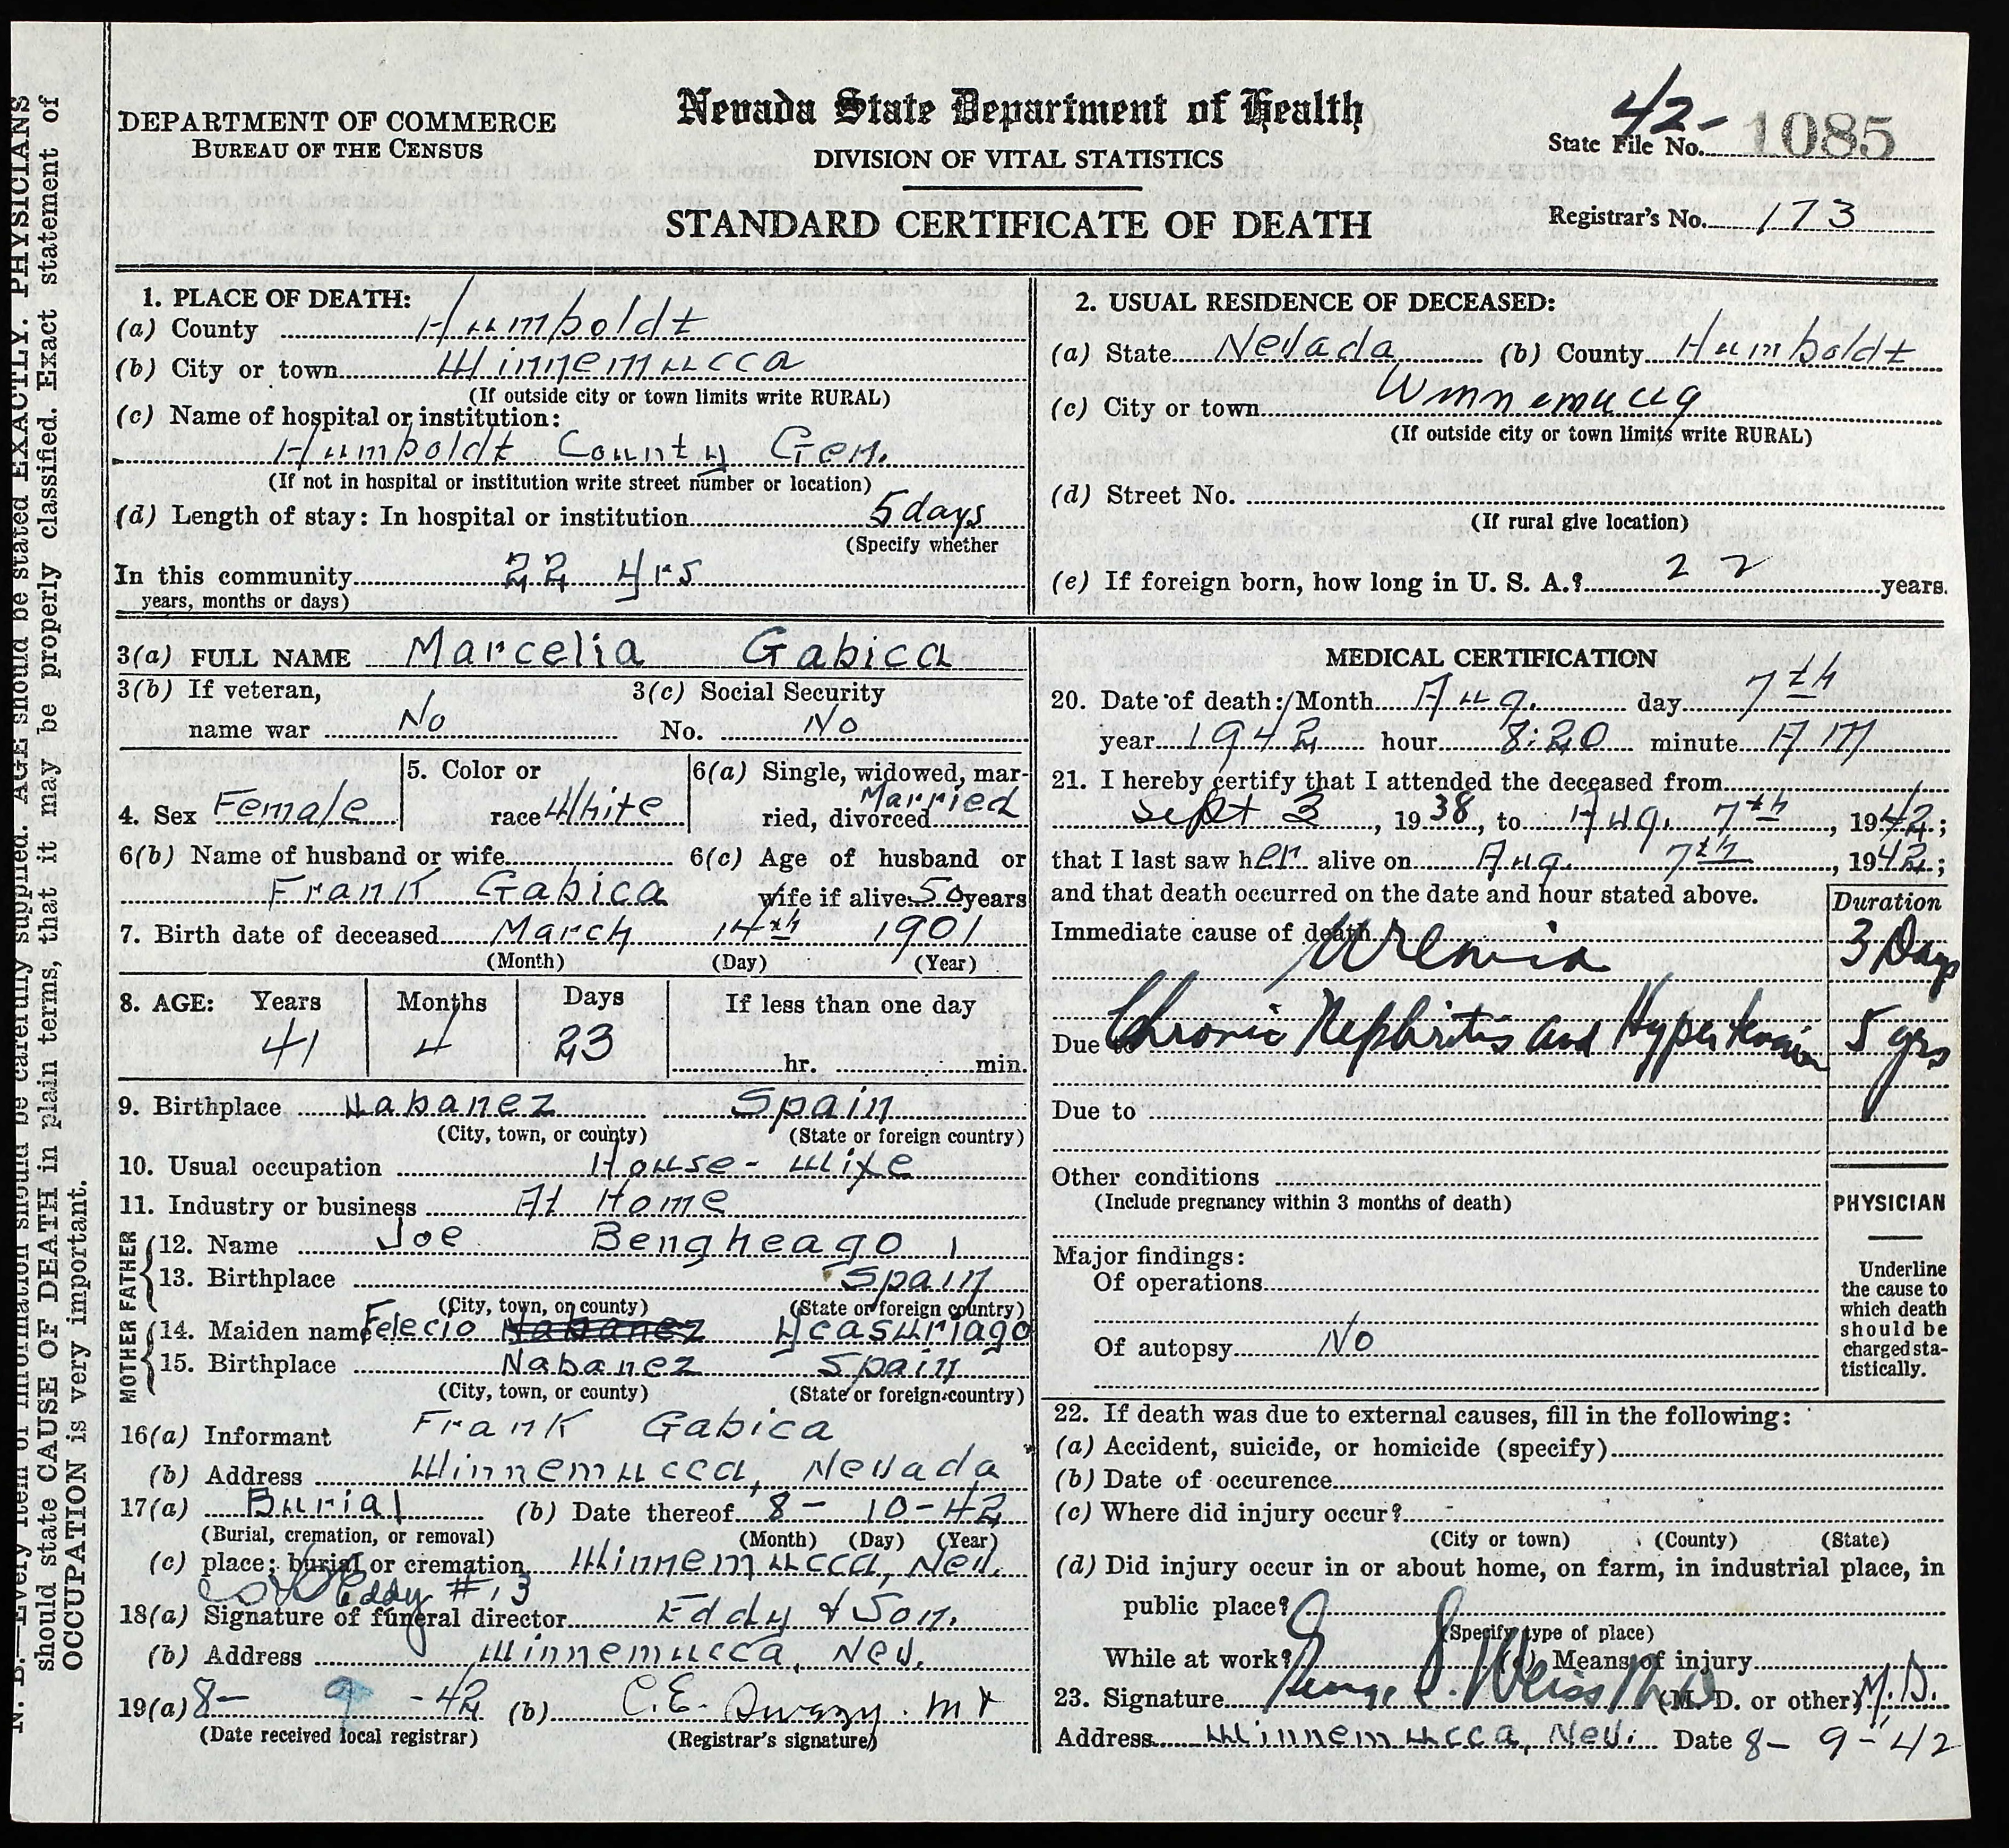 DEPARTMENT OF COMMERCE
BUREAU OF THE CENSUS
Nevada State Department of Health
DIVISION OF VITAL STATISTICS
STANDARD CERTIFICATE OF DEATH
State File No. 42- 1085
Registrar's No. 173
N. B.—Every item of information should be carefully supplied. AGE should be stated EXACTLY. PHYSICIANS
should state CAUSE OF DEATH in plain terms, that it may be properly classified. Exact statement of
OCCUPATION is very important.
1. PLACE OF DEATH:
(a) County Humboldt
(b) City or town Winnemucca
(If outside city or town limits write RURAL)
(c) Name of hospital or institution:
Humboldt County Gen.
(If not in hospital or institution write street number or location)
(d) Length of stay: In hospital or institution 5 days
(Specify whether
In this community 22 yrs
years, months or days)
2. USUAL RESIDENCE OF DECEASED:
(a) State Nevada (b) County Humboldt
(c) City or town Winnemucca
(If outside city or town limits write RURAL)
(d) Street No.
(If rural give location)
(e) If foreign born, how long in U. S. A.? 22 years.
3(a) FULL NAME Marcelia Gabica
3(b) If veteran, 3(c) Social Security
name war No No. No
4. Sex Female 5. Color or race White 6(a) Single, widowed, married, divorced Married
6(b) Name of husband or wife 6(c) Age of husband or
Frank Gabica wife if alive 50 years
7. Birth date of deceased March 14th 1901
(Month) (Day) (Year)
8. AGE: Years Months Days If less than one day
41 4 23 hr. min.
9. Birthplace Nabanez Spain
(City, town, or county) (State or foreign country)
10. Usual occupation House-wife
11. Industry or business At Home
FATHER
12. Name Joe Bengheago
13. Birthplace Spain
(City, town, or county) (State or foreign country)
MOTHER
14. Maiden name Felecio Nabanez Ycasuriago
15. Birthplace Nabanez Spain
(City, town, or county) (State or foreign country)
16(a) Informant Frank Gabica
(b) Address Winnemucca, Nevada
17(a) Burial (b) Date thereof 8- 10-42
(Burial, cremation, or removal) (Month) (Day) (Year)
(c) place; burial or cremation Winnemucca, Nev.
Eddy #13
18(a) Signature of funeral director Eddy & Son.
(b) Address Winnemucca, Nev.
19(a) 8- 9 -42 (b) C.E.
(Date received local registrar) (Registrar's signature)
MEDICAL CERTIFICATION
20. Date of death: Month Aug. day 7th
year 1942 hour 8:20 minute AM
21. I hereby certify that I attended the deceased from
Sept 3, 1938, to Aug. 7th, 1942;
that I last saw her alive on Aug. 7th, 1942;
and that death occurred on the date and hour stated above.
Duration
Immediate cause of death Uremia 3 Days
Due to Chronic Nephritis and Hypertension 5 yrs
Due to
Other conditions
(Include pregnancy within 3 months of death)
PHYSICIAN
Underline
the cause to
which death
should be
charged sta-
tistically.
Major findings:
Of operations
Of autopsy No
22. If death was due to external causes, fill in the following:
(a) Accident, suicide, or homicide (specify)
(b) Date of occurence
(c) Where did injury occur?
(City or town) (County) (State)
(d) Did injury occur in or about home, on farm, in industrial place, in
public place?
(Specify type of place)
While at work? (e) Means of injury
23. Signature George S. Weiss M.D. (M. D. or other) M.D.
Address Winnemucca, Nev. Date 8- 9-42